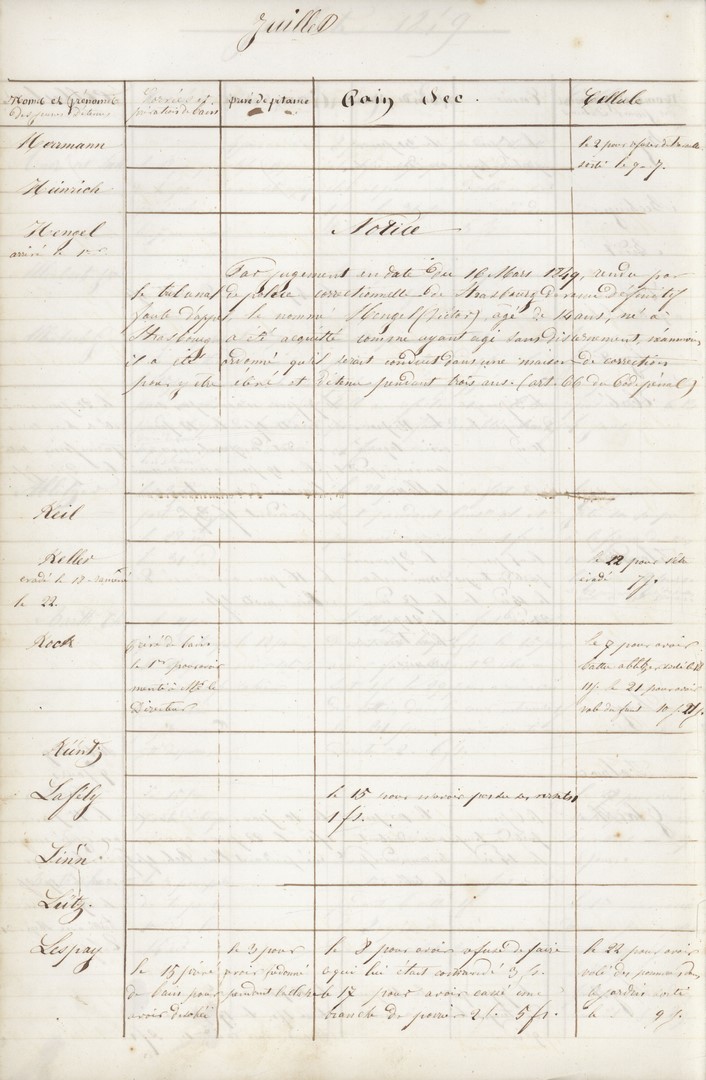 Juillet
Noms et prénoms
des jeunes détenus
privé de pitance
Pain Sec.
Cellule
Herrmann
le 2 pour refus de travail
sorti le 9. 7.
Heinrich
Hengel
arrivé le 1er
Notice
Par jugement en date du 16 Mars 1849, rendu par
le tribunal de police correctionnelle de Strasbourg devenu définitif
faute d'appel, le nommé Hengel (Victor), agé de 14 ans, né à
Strasbourg a été acquitté comme ayant agi sans discernement, néanmoins
il a été ordonné qu'il serait conduit dans une maison de correction
pour y être élevé et détenu pendant trois ans (art. 66 du Code pénal)
Keil
Keller
évadé le 18
le 22.
le 22 pour s'être
évadé 7 j.
Kock
privé de bains
le 1er pour avoir
menti à Mr. le
Directeur
le 9 pour avoir
battu
11 j. le 21 pour avoir
volé du fruit 10 j. 21 j.
Küntz
Lafily
le 15 pour avoir perdu
1 f.
Linn
Lütz.
Lespay
le 15 privé
de bains pour
avoir désobéi
le 3 pour
avoir
pendant
le 8 pour avoir refusé de faire
ce qui lui était commandé 3 f.
le 17 pour avoir cassé une
branche de poirier 2 f. 5 f.
le 22 pour avoir
volé des pommes dans
le jardin sorti
le 9 j.